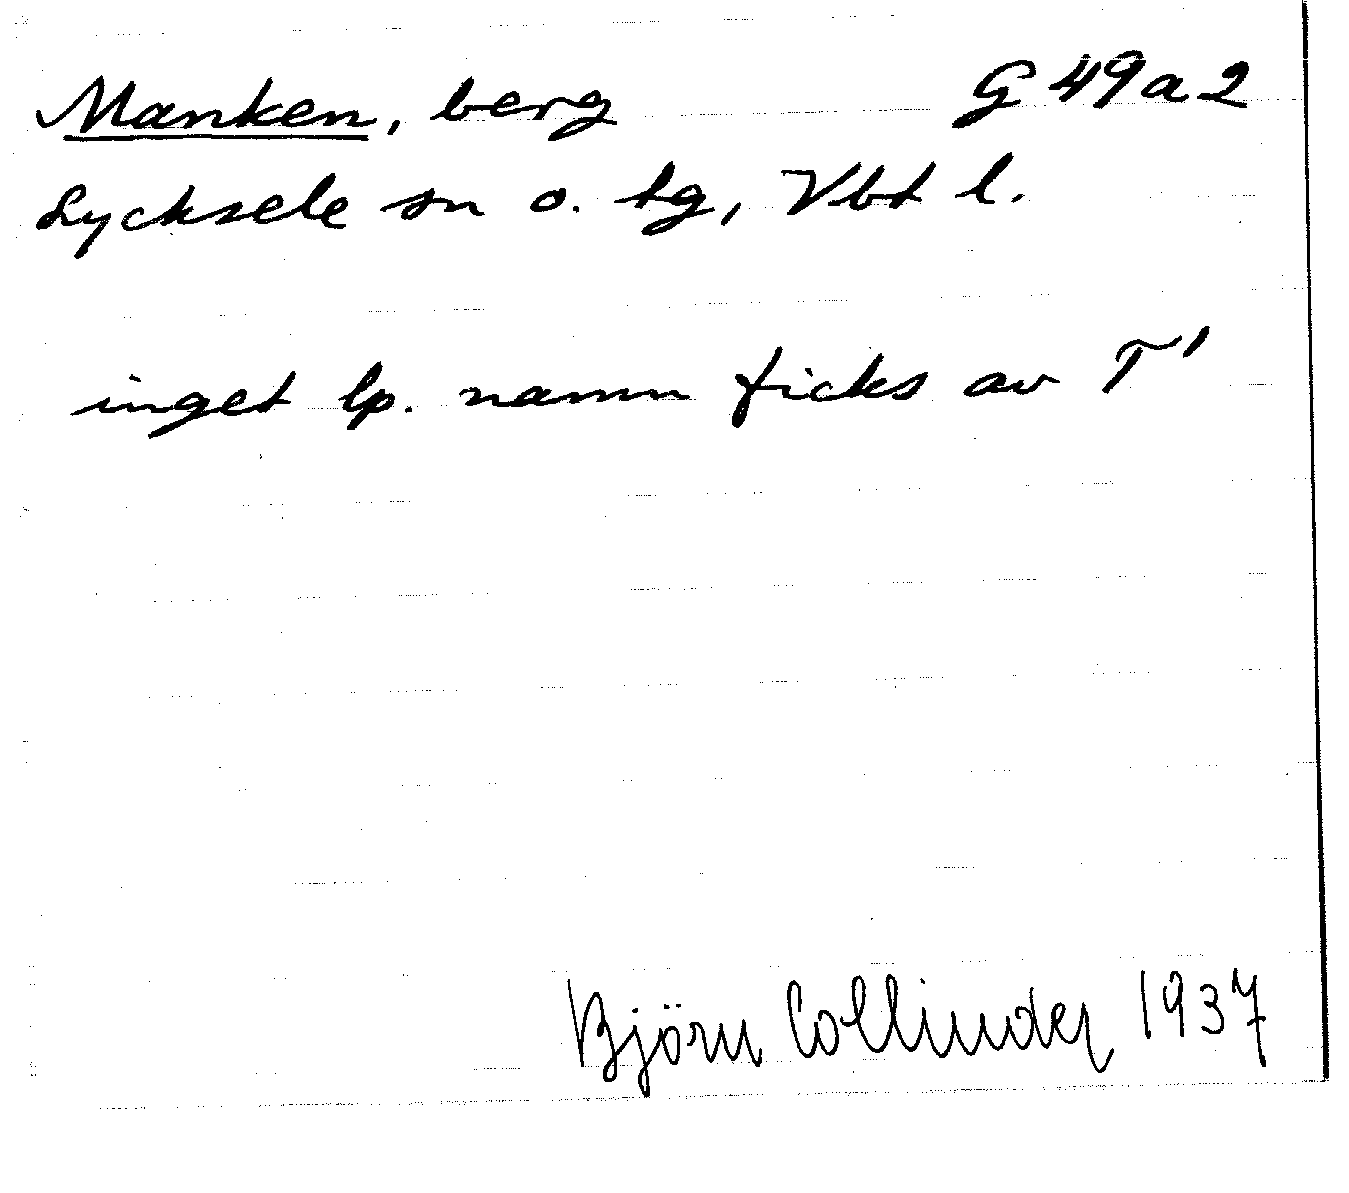 Manken, berg G 49 a 2
Lycksele sn o. tg, Vbt l.
inget lp. namn ficks av T'
Björn Collinder 1937